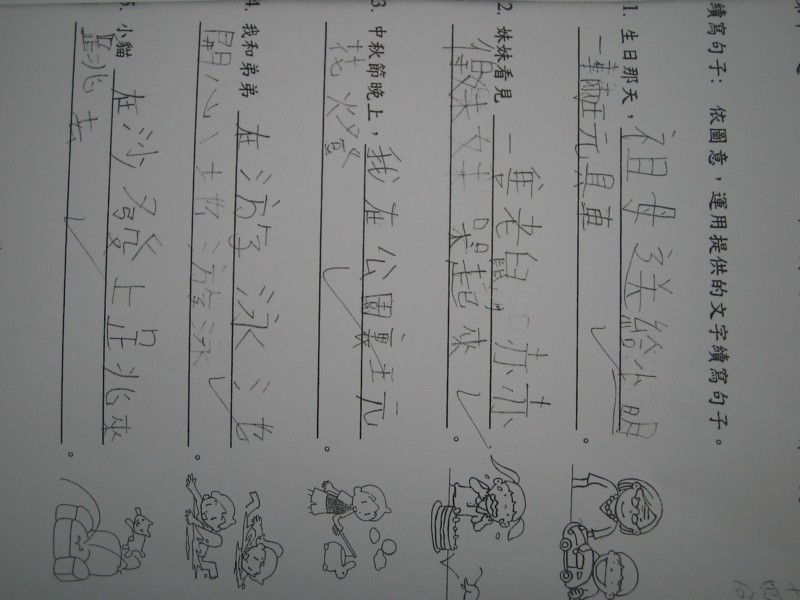 續寫句子：依圖意，運用提供的文字續寫句子。
1. 生日那天，祖母送給小明
一輛玩具車。
2. 妹妹看見一隻老鼠，嚇
得妹妹哭起來。
3. 中秋節晚上，我在公園裏玩
花燈。
4. 我和弟弟在游泳池
開心地游泳。
5. 小貓在沙發上跳來
跳去。